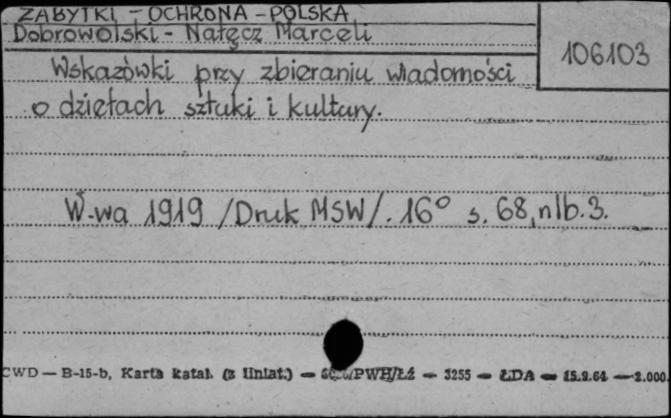 ZABYTKI - OCHRONA - POLSKA
Dobrowolski - Nałęcz Marceli
106103
Wskazówki przy zbieraniu wiadomości
o dziełach sztuki i kultury.
W-wa 1919 /Druk MSW/. 16° s. 68, nlb. 3.
CWD — B-15-b, Karta katal. (z liniat.) — PWH/Łź — 3255 — ŁDA — 15.9.64 — 2.000